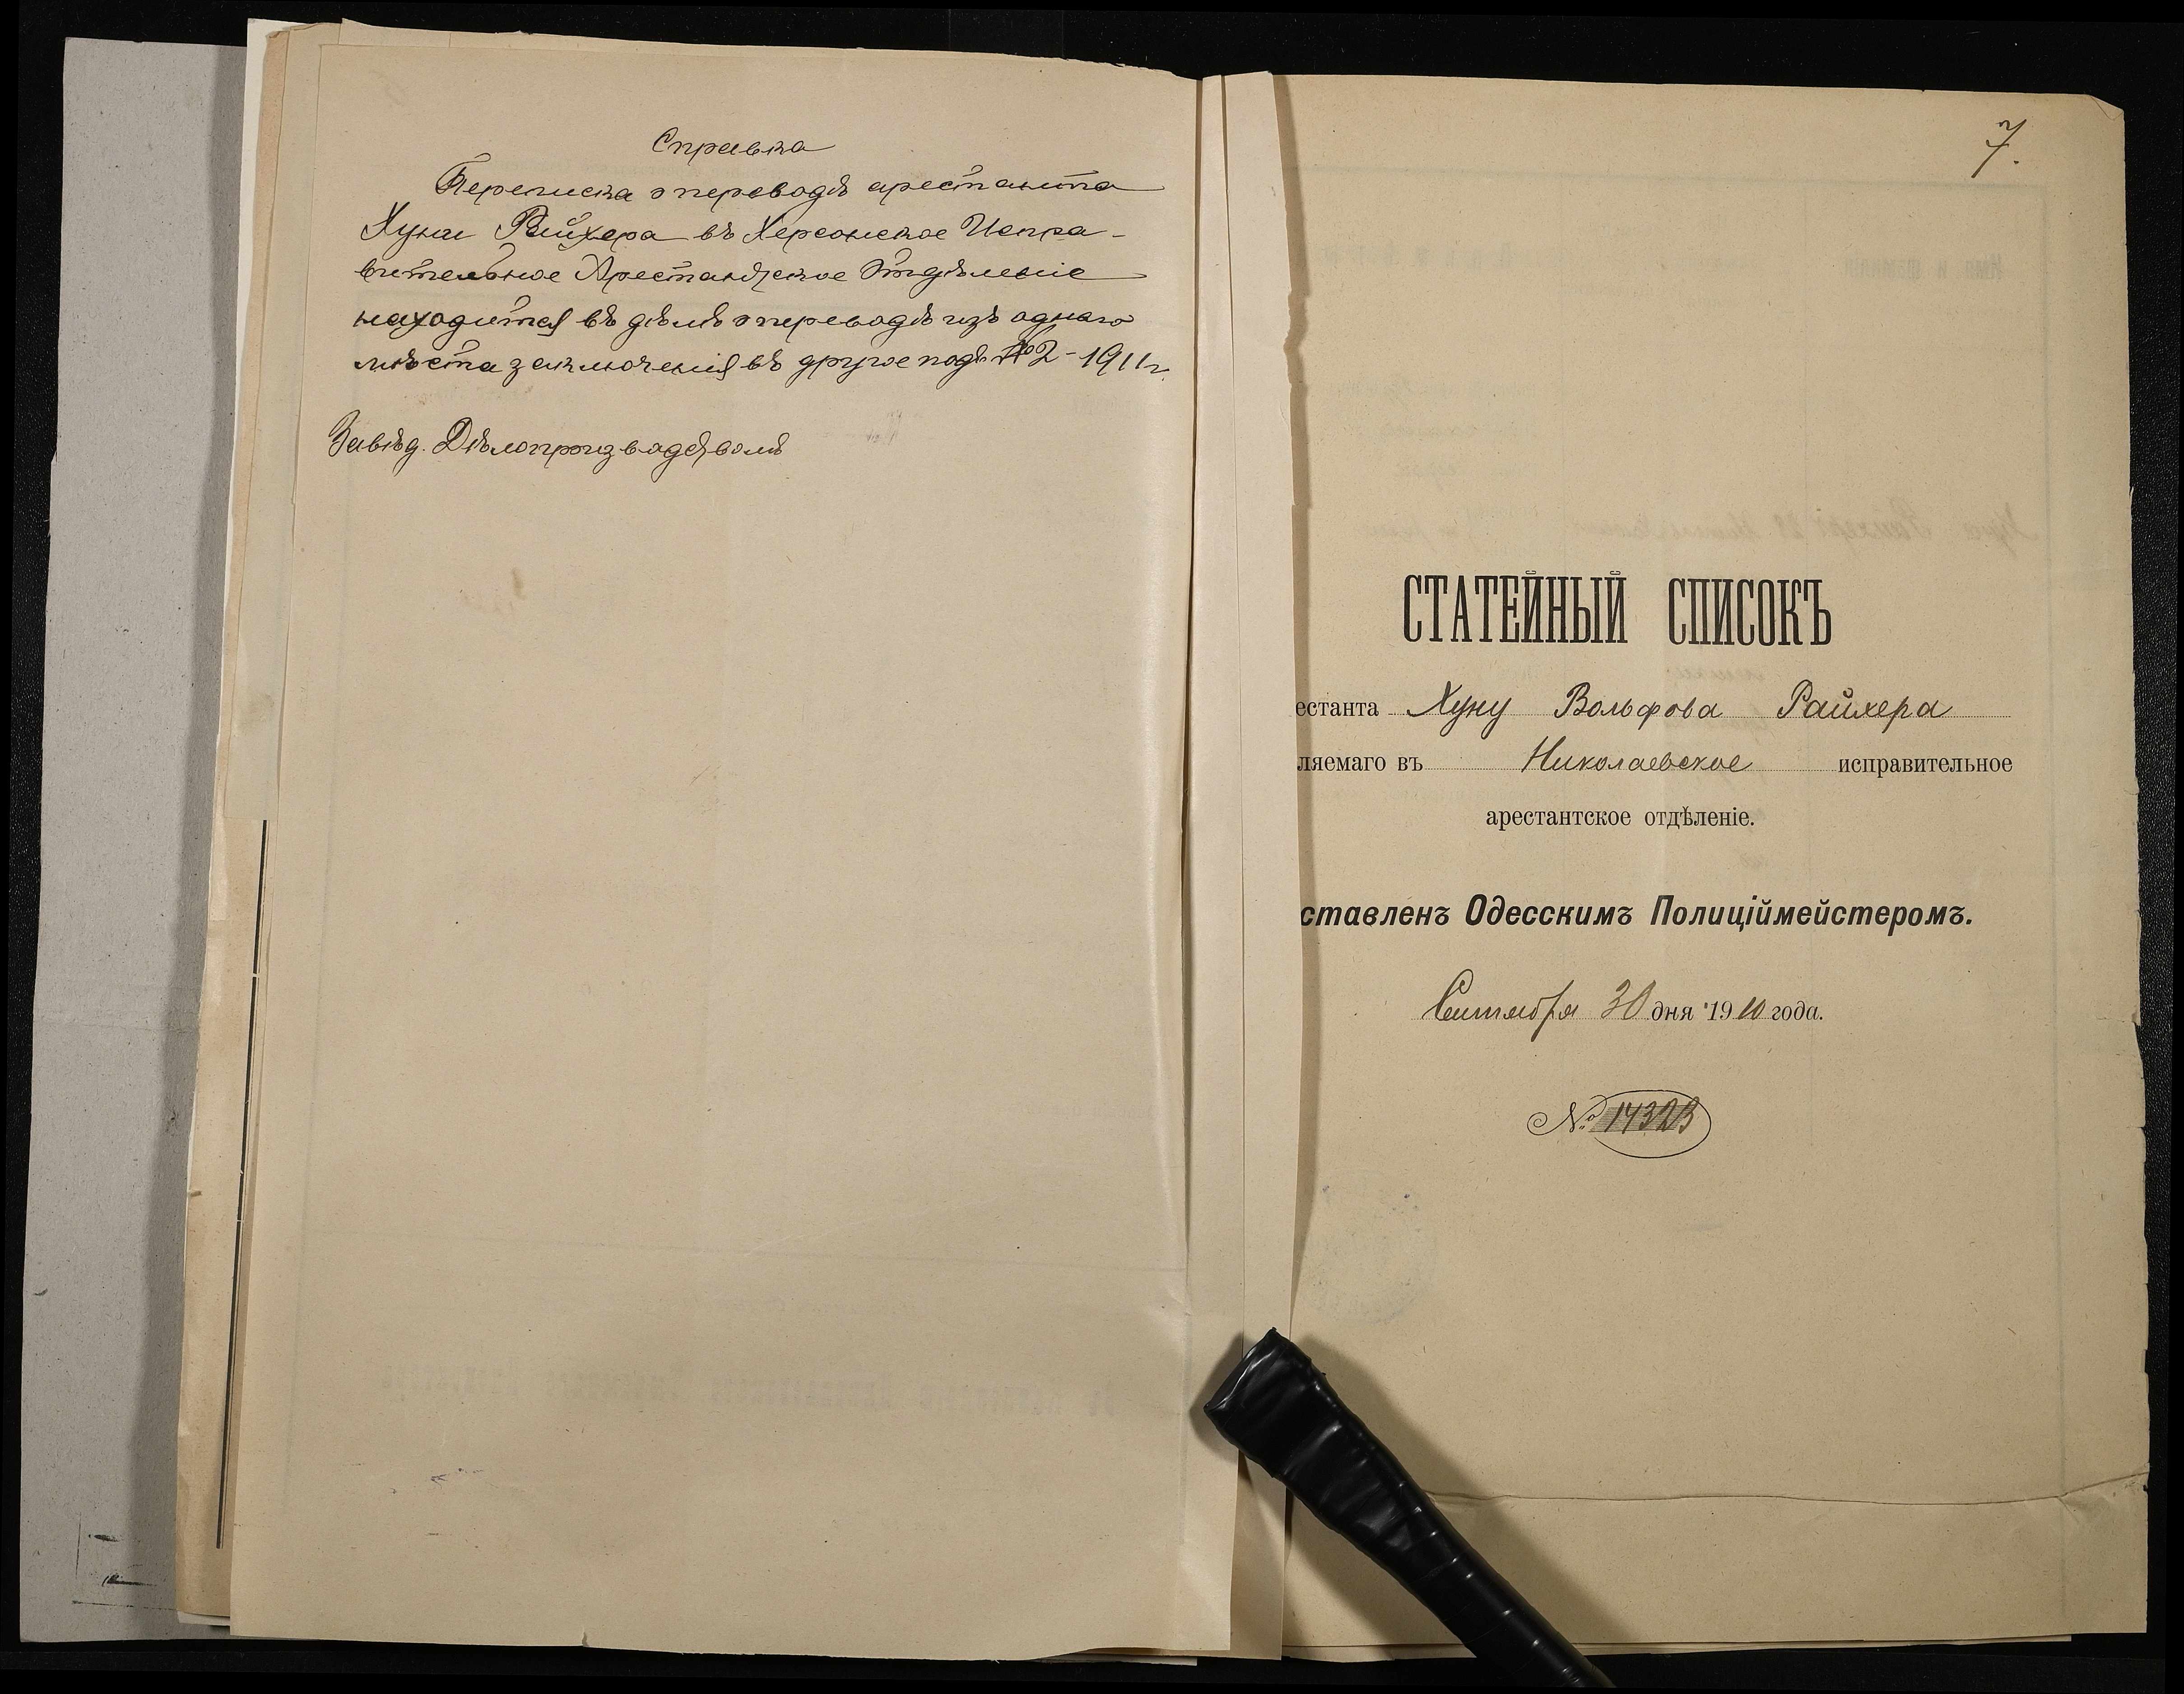 Справка
Переписка о переводѣ арестанта
Хуны Райхера въ Херсонское Испра-
вительное Арестантское Отдѣленіе
находится въ дѣлѣ о переводѣ изъ одного
мѣста заключенія въ другое подъ № 2 - 1911 г.
Завѣд. Дѣлопроизводствомъ
7.
СТАТЕЙНЫЙ СПИСОКЪ
естанта Хуну Вольфова Райхера
ляемаго въ Николаевское исправительное
арестантское отдѣленіе.
ставленъ Одесскимъ Полиціймейстеромъ.
Сентября 30 дня 1910 года.
№ 14323